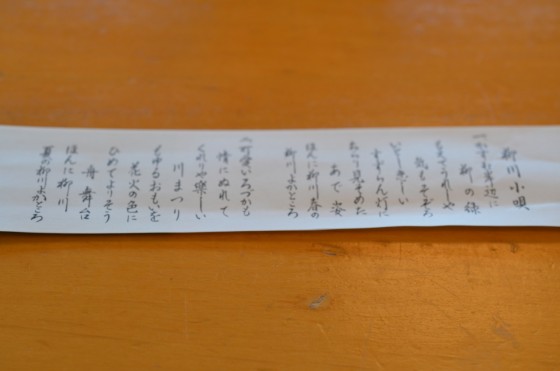 柳川小唄
かすむ岸辺に
柳の緑
気もそぞろ
いとしかし
すずらん灯に
ちらり見そめた
あで姿
ほんに柳川春の
柳川よかところ
町堂いろづかも
情にぬれて
くれりや楽しい
川まつり
もゆるおもいを
花火の色に
ひめてよりそう
舟舞台
ほんに柳川
夏の柳川よかところ